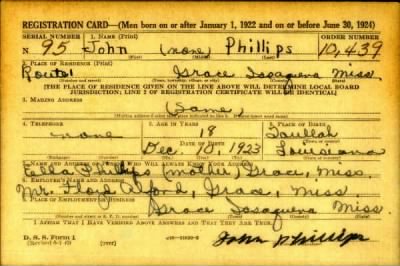 REGISTRATION CARD—(Men born on or after January 1, 1922 and on or before June 30, 1924)
SERIAL NUMBER 1. NAME (Print) ORDER NUMBER
N 95 John (none) Phillips 10,439
2. PLACE OF RESIDENCE (Print)
Route 1 Grace Issaquena Miss.
[THE PLACE OF RESIDENCE GIVEN ON THE LINE ABOVE WILL DETERMINE LOCAL BOARD
JURISDICTION; LINE 2 OF REGISTRATION CERTIFICATE WILL BE IDENTICAL]
3. MAILING ADDRESS
(Same)
4. TELEPHONE 5. AGE IN YEARS 6. PLACE OF BIRTH
none 18 Taullah
DATE OF BIRTH
Dec. 10, 1923 Louisiana
7. NAME AND ADDRESS OF PERSON WHO WILL ALWAYS KNOW YOUR ADDRESS
Ella Phillips (mother) Grace, Miss.
8. EMPLOYER'S NAME AND ADDRESS
Mr. Floyd Alford, Grace, Miss
9. PLACE OF EMPLOYMENT OR BUSINESS
Grace Issaquena Miss.
I AFFIRM THAT I HAVE VERIFIED ABOVE ANSWERS AND THAT THEY ARE TRUE.
D. S. S. Form 1
John Phillips